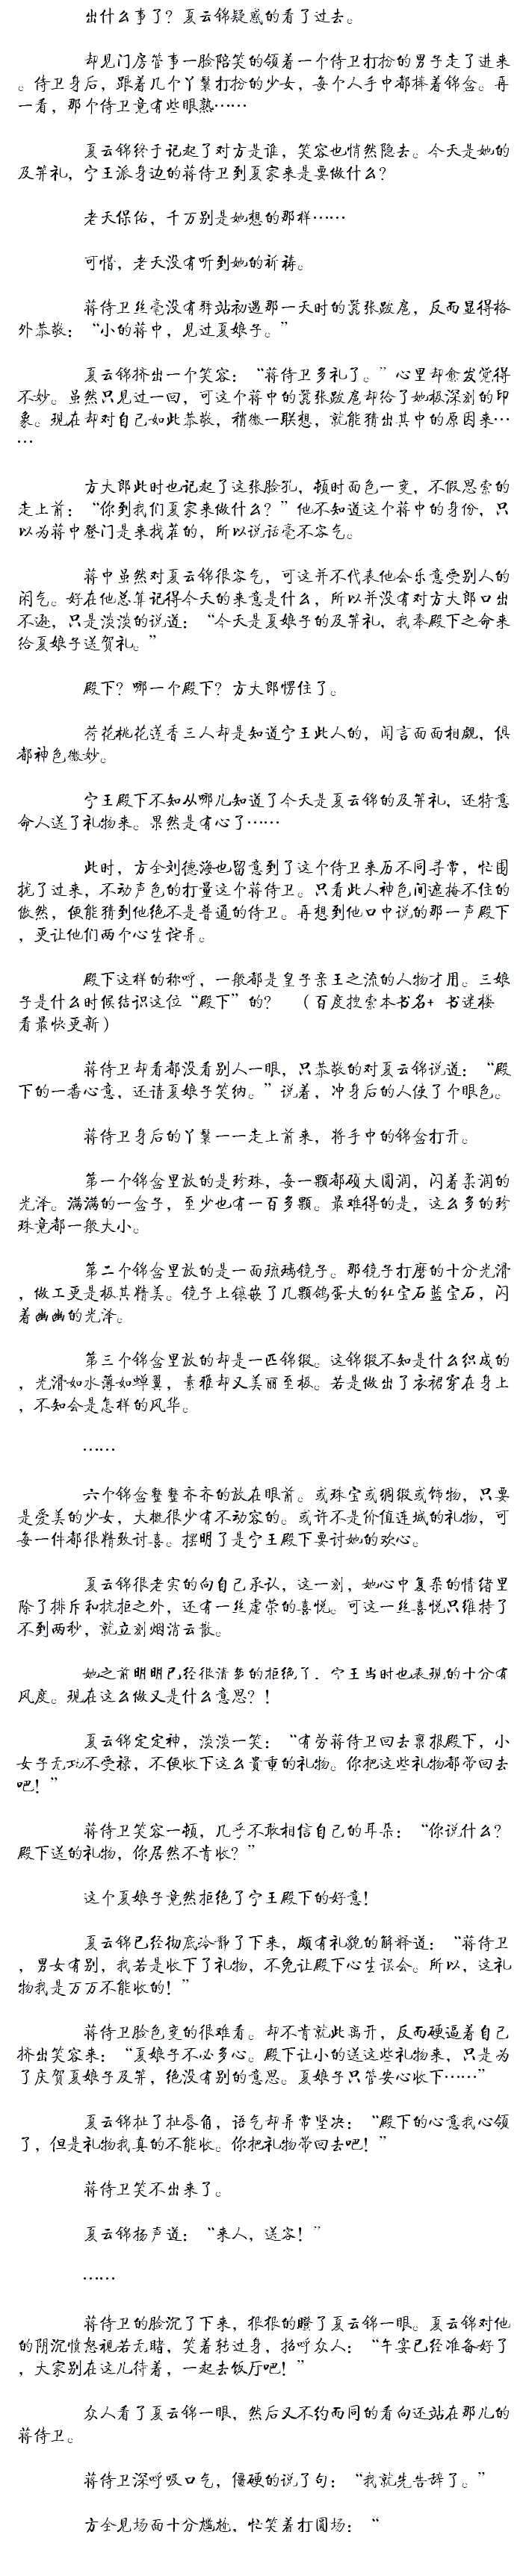 出什么事了？夏云锦疑惑的看了过去。
却见门房管事一脸陪笑的领着一个侍卫打扮的男子走了进来
。侍卫身后，跟着几个丫鬟打扮的少女，每个人手中都捧着锦盒。再
一看，那个侍卫竟有些眼熟……
夏云锦终于记起了对方是谁，笑容也悄然隐去。今天是她的
及笄礼，宁王派身边的蒋侍卫到夏家来是要做什么？
老天保佑，千万别是她想的那样……
可惜，老天没有听到她的祈祷。
蒋侍卫丝毫没有驿站初遇那一天时的嚣张跋扈，反而显得格
外恭敬：“小的蒋中，见过夏娘子。”
夏云锦挤出一个笑容：“蒋侍卫多礼了。”心里却愈发觉得
不妙。虽然只见过一回，可这个蒋中的嚣张跋扈却给了她极深刻的印
象。现在却对自己如此恭敬，稍微一联想，就能猜出其中的原因来…
…
方大郎此时也记起了这张脸孔，顿时面色一变，不假思索的
走上前：“你到我们夏家来做什么？”他不知道这个蒋中的身份，只
以为蒋中登门是来找茬的，所以说话毫不客气。
蒋中虽然对夏云锦很客气，可这并不代表他会乐意受别人的
闲气。好在他总算记得今天的来意是什么，所以并没有对方大郎口出
不逊，只是淡淡的说道：“今天是夏娘子的及笄礼，我奉殿下之命来
给夏娘子送贺礼。”
殿下？哪一个殿下？方大郎愣住了。
荷花桃花莲香三人却是知道宁王此人的，闻言面面相觑，俱
都神色微妙。
宁王殿下不知从哪儿知道了今天是夏云锦的及笄礼，还特意
命人送了礼物来。果然是有心了……
此时，方全刘德海也留意到了这个侍卫来历不同寻常，忙围
拢了过来，不动声色的打量这个蒋侍卫。只看此人神色间遮掩不住的
傲然，便能猜到他绝不是普通的侍卫。再想到他口中说的那一声殿下
，更让他们两个心生诧异。
殿下这样的称呼，一般都是皇子亲王之流的人物才用。三娘
子是什么时候结识这位“殿下”的？ （百度搜索本书名+ 书迷楼
看最快更新）
蒋侍卫却看都没看别人一眼，只恭敬的对夏云锦说道：“殿
下的一番心意，还请夏娘子笑纳。”说着，冲身后的人使了个眼色。
蒋侍卫身后的丫鬟一一走上前来，将手中的锦盒打开。
第一个锦盒里放的是珍珠，每一颗都硕大圆润，闪着柔润的
光泽。满满的一盒子，至少也有一百多颗。最难得的是，这么多的珍
珠竟都一般大小。
第二个锦盒里放的是一面琉璃镜子。那镜子打磨的十分光滑
，做工更是极其精美。镜子上镶嵌了几颗鸽蛋大的红宝石蓝宝石，闪
着幽幽的光泽。
第三个锦盒里放的却是一匹锦缎。这锦缎不知是什么织成的
，光滑如水薄如蝉翼，素雅却又美丽至极。若是做出了衣裙穿在身上
，不知会是怎样的风华。
……
六个锦盒整整齐齐的放在眼前。或珠宝或绸缎或饰物，只要
是爱美的少女，大概很少有不动容的。或许不是价值连城的礼物，可
每一件都很精致讨喜。摆明了是宁王殿下要讨她的欢心。
夏云锦很老实的向自己承认，这一刻，她心中复杂的情绪里
除了排斥和抗拒之外，还有一丝虚荣的喜悦。可这一丝喜悦只维持了
不到两秒，就立刻烟消云散。
她之前明明已经很清楚的拒绝了，宁王当时也表现的十分有
风度。现在这么做又是什么意思？！
夏云锦定定神，淡淡一笑：“有劳蒋侍卫回去禀报殿下，小
女子无功不受禄，不便收下这么贵重的礼物。你把这些礼物都带回去
吧！”
蒋侍卫笑容一顿，几乎不敢相信自己的耳朵：“你说什么？
殿下送的礼物，你居然不肯收？”
这个夏娘子竟然拒绝了宁王殿下的好意！
夏云锦已经彻底冷静了下来，颇有礼貌的解释道：“蒋侍卫
，男女有别，我若是收下了礼物，不免让殿下心生误会。所以，这礼
物我是万万不能收的！”
蒋侍卫脸色变的很难看。却不肯就此离开，反而硬逼着自己
挤出笑容来：“夏娘子不必多心。殿下让小的送这些礼物来，只是为
了庆贺夏娘子及笄，绝没有别的意思。夏娘子只管安心收下……”
夏云锦扯了扯唇角，语气却异常坚决：“殿下的心意我心领
了，但是礼物我真的不能收。你把礼物带回去吧！”
蒋侍卫笑不出来了。
夏云锦扬声道：“来人，送客！”
……
蒋侍卫的脸沉了下来，狠狠的瞪了夏云锦一眼。夏云锦对他
的阴沉愤怒视若无睹，笑着转过身，招呼众人：“午宴已经准备好了
，大家别在这儿待着，一起去饭厅吧！”
众人看了夏云锦一眼，然后又不约而同的看向还站在那儿的
蒋侍卫。
蒋侍卫深呼吸口气，僵硬的说了句：“我就先告辞了。”
方全见场面十分尴尬，忙笑着打圆场：“